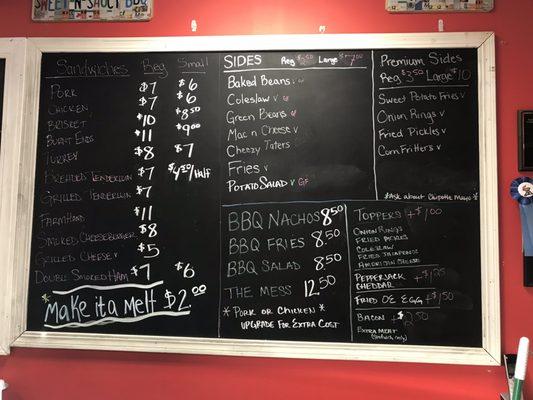 SWEET-N-SAUCY BBQ
Sandwiches Reg Small
Pork $7 $6
Chicken $7 $6
Brisket $10 $8.50
Burnt Ends $11 $9.00
Turkey $8 $7
Breaded Tenderloin $7 $4.50/Half
Grilled Tenderloin $7
Farmhand $11
Smoked Cheeseburger $8
Grilled Cheese v $5
Double Smoked Ham $7 $6
*Make it a Melt $2.00
SIDES Reg $2.50 Large $7.00
Baked Beans GF
Coleslaw v GF
Green Beans GF
Mac n Cheese v
Cheezy Taters
Fries v
Potato Salad v GF
Premium Sides
Reg $3.50 Large $10
Sweet Potato Fries v
Onion Rings v
Fried Pickles v
Corn Fritters v
*Ask about Chipotle Mayo *
BBQ Nachos 8.50
BBQ Fries 8.50
BBQ Salad 8.50
The Mess 12.50
* Pork or Chicken *
Upgrade For Extra Cost
Toppers +$1.00
Onion Rings
Fried Pickles
Coleslaw
Fried Jalapenos
American Cheese
Pepperjack +$1.25
Cheddar
Fried Egg +$1.50
Bacon +$2.50
Extra Meat
(Sandwich only)